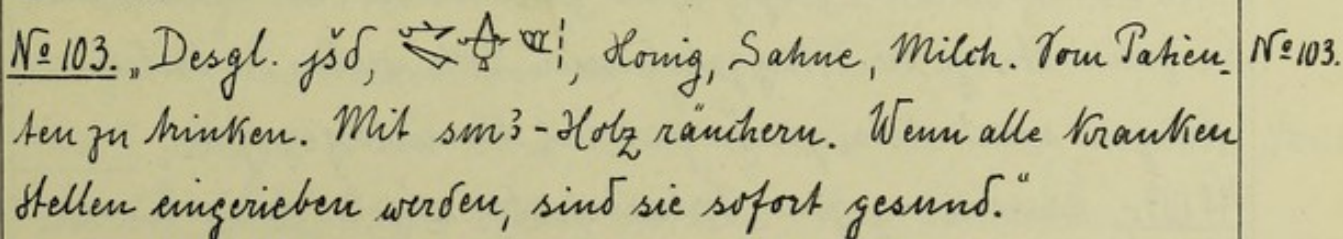 № 103. „Desgl. jšd, , Honig, Sahne, Milch. Vom Patien- № 103.
ten zu trinken. Mit smꜣ-Holz räuchern. Wenn alle kranken
Stellen eingerieben werden, sind sie sofort gesund.“